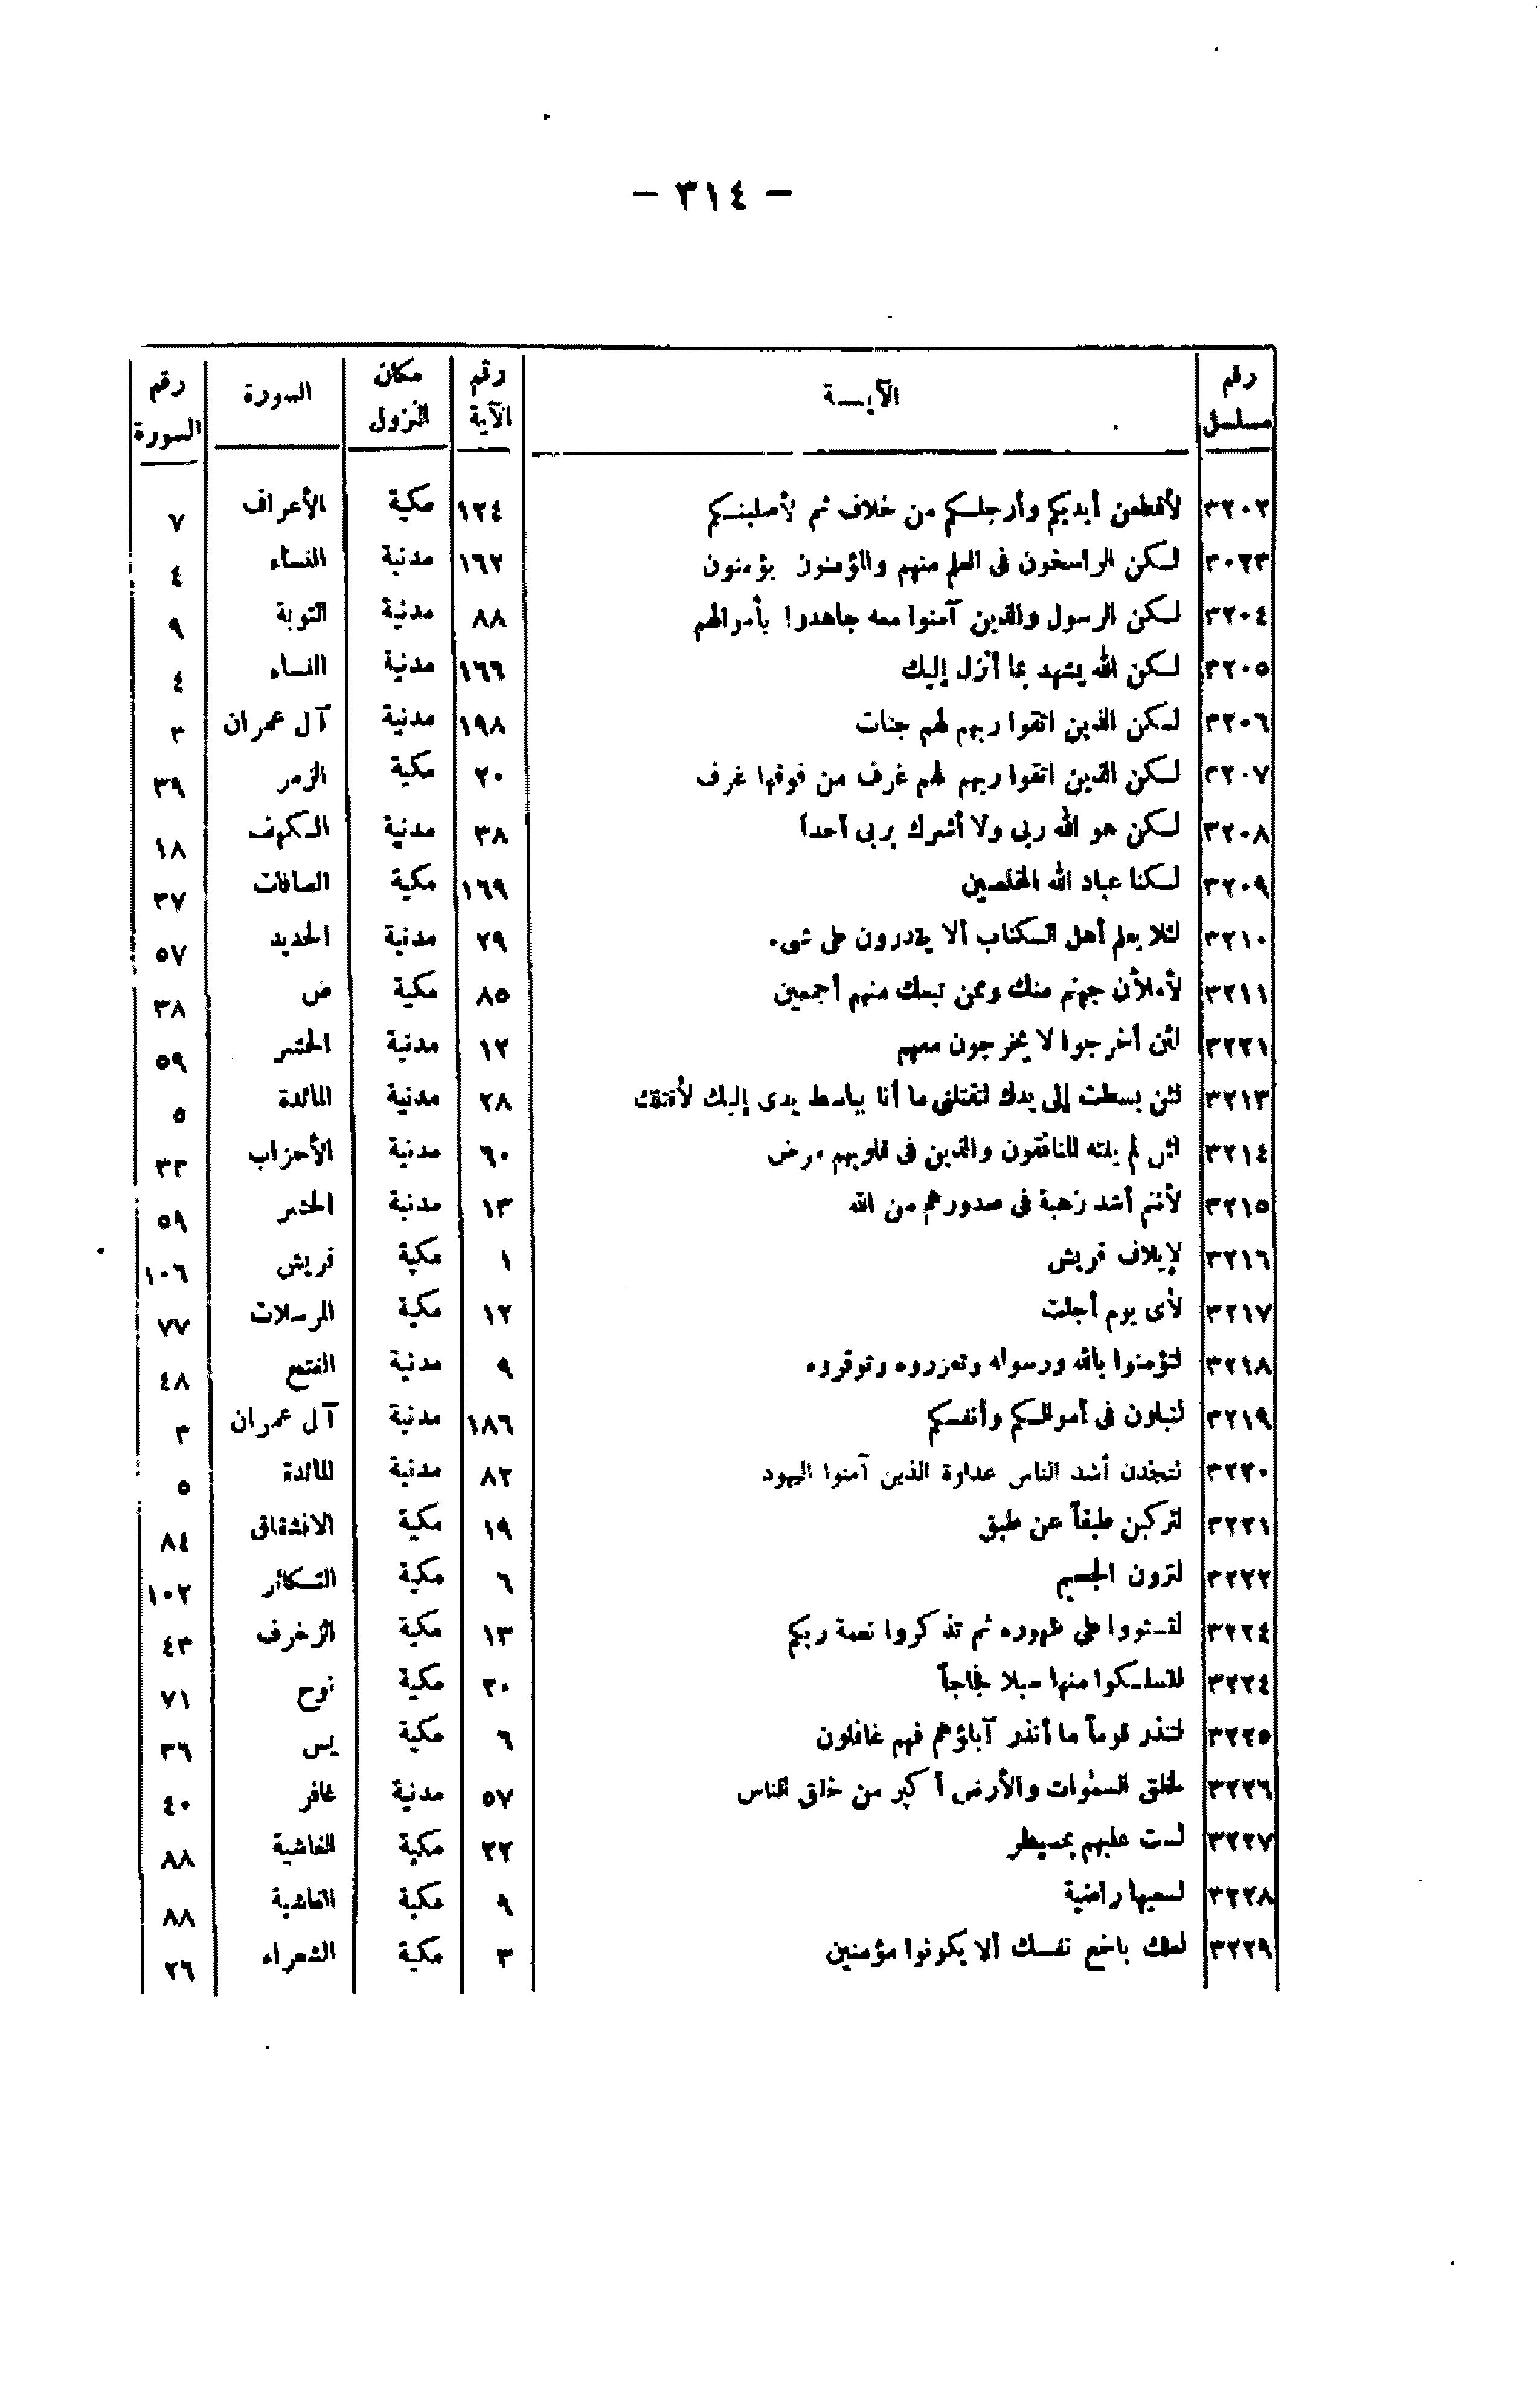 — ٣١٤ —
رقم مسلسل الآيــة رقم الآية مكان النزول السورة رقم السورة
٣٢٠٢ لأقطعن أيديكم وأرجلكم من خلاف ثم لأصلبنكم ١٢٤ مكية الأعراف ٧
٣٠٢٣ لكن الراسخون فى العلم منهم والمؤمنون يؤمنون ١٦٢ مدنية النساء ٤
٣٢٠٤ لكن الرسول والذين آمنوا معه جاهدوا بأموالهم ٨٨ مدنية التوبة ٩
٣٢٠٥ لكن الله يشهد بما أنزل إليك ١٦٦ مدنية النساء ٤
٣٢٠٦ لكن الذين اتقوا ربهم لهم جنات ١٩٨ مدنية آل عمران ٣
٣٢٠٧ لكن الذين اتقوا ربهم لهم غرف من فوقها غرف ٢٠ مكية الزمر ٣٩
٣٢٠٨ لكن هو الله ربى ولا أشرك بربى أحداً ٣٨ مدنية الكهف ١٨
٣٢٠٩ لكنا عباد الله المخلصين ١٦٩ مكية الصافات ٣٧
٣٢١٠ لئلا يعلم أهل الكتاب ألا يقدرون على شىء ٢٩ مدنية الحديد ٥٧
٣٢١١ لأملأن جهنم منك وممن تبعك منهم أجمعين ٨٥ مكية ض ٣٨
٣٢٢١ لئن أخرجوا لا يخرجون معهم ١٢ مدنية الحشر ٥٩
٣٢١٣ لئن بسطت إلى يدك لتقتلنى ما أنا بباسط يدى إليك لأقتلك ٢٨ مدنية المائدة ٥
٣٢١٤ لئن لم ينته المنافقون والذين فى قلوبهم مرض ٦٠ مدنية الأحزاب ٣٣
٣٢١٥ لأنتم أشد رهبة فى صدورهم من الله ١٣ مدنية الحشر ٥٩
٣٢١٦ لإيلاف قريش ١ مكية قريش ١٠٦
٣٢١٧ لأى يوم أجلت ١٢ مكية المرسلات ٧٧
٣٢١٨ لتؤمنوا بالله ورسوله وتعزروه وتوقروه ٩ مدنية الفتح ٤٨
٣٢١٩ لتبلون فى أموالكم وأنفسكم ١٨٦ مدنية آل عمران ٣
٣٢٢٠ لتجدن أشد الناس عداوة الذين آمنوا اليهود ٨٢ مدنية المائدة ٥
٣٢٢١ لتركبن طبقاً عن طبق ١٩ مكية الانشقاق ٨٤
٣٢٢٢ لترون الجحيم ٦ مكية التكاثر ١٠٢
٣٢٢٤ لتستووا على ظهوره ثم تذكروا نعمة ربكم ١٣ مكية الزخرف ٤٣
٣٢٢٤ لتسلكوا منها سبلا فجاجاً ٢٠ مكية نوح ٧١
٣٢٢٥ لتنذر قوماً ما أنذر آباؤهم فهم غافلون ٦ مكية يس ٣٦
٣٢٢٦ لخلق السموات والأرض أكبر من خلق الناس ٥٧ مدنية غافر ٤٠
٣٢٢٧ لست عليهم بمسيطر ٢٢ مكية الغاشية ٨٨
٣٢٢٨ لسعيها راضية ٩ مكية الغاشية ٨٨
٣٢٢٩ لعلك باخع نفسك ألا يكونوا مؤمنين ٣ مكية الشعراء ٢٦